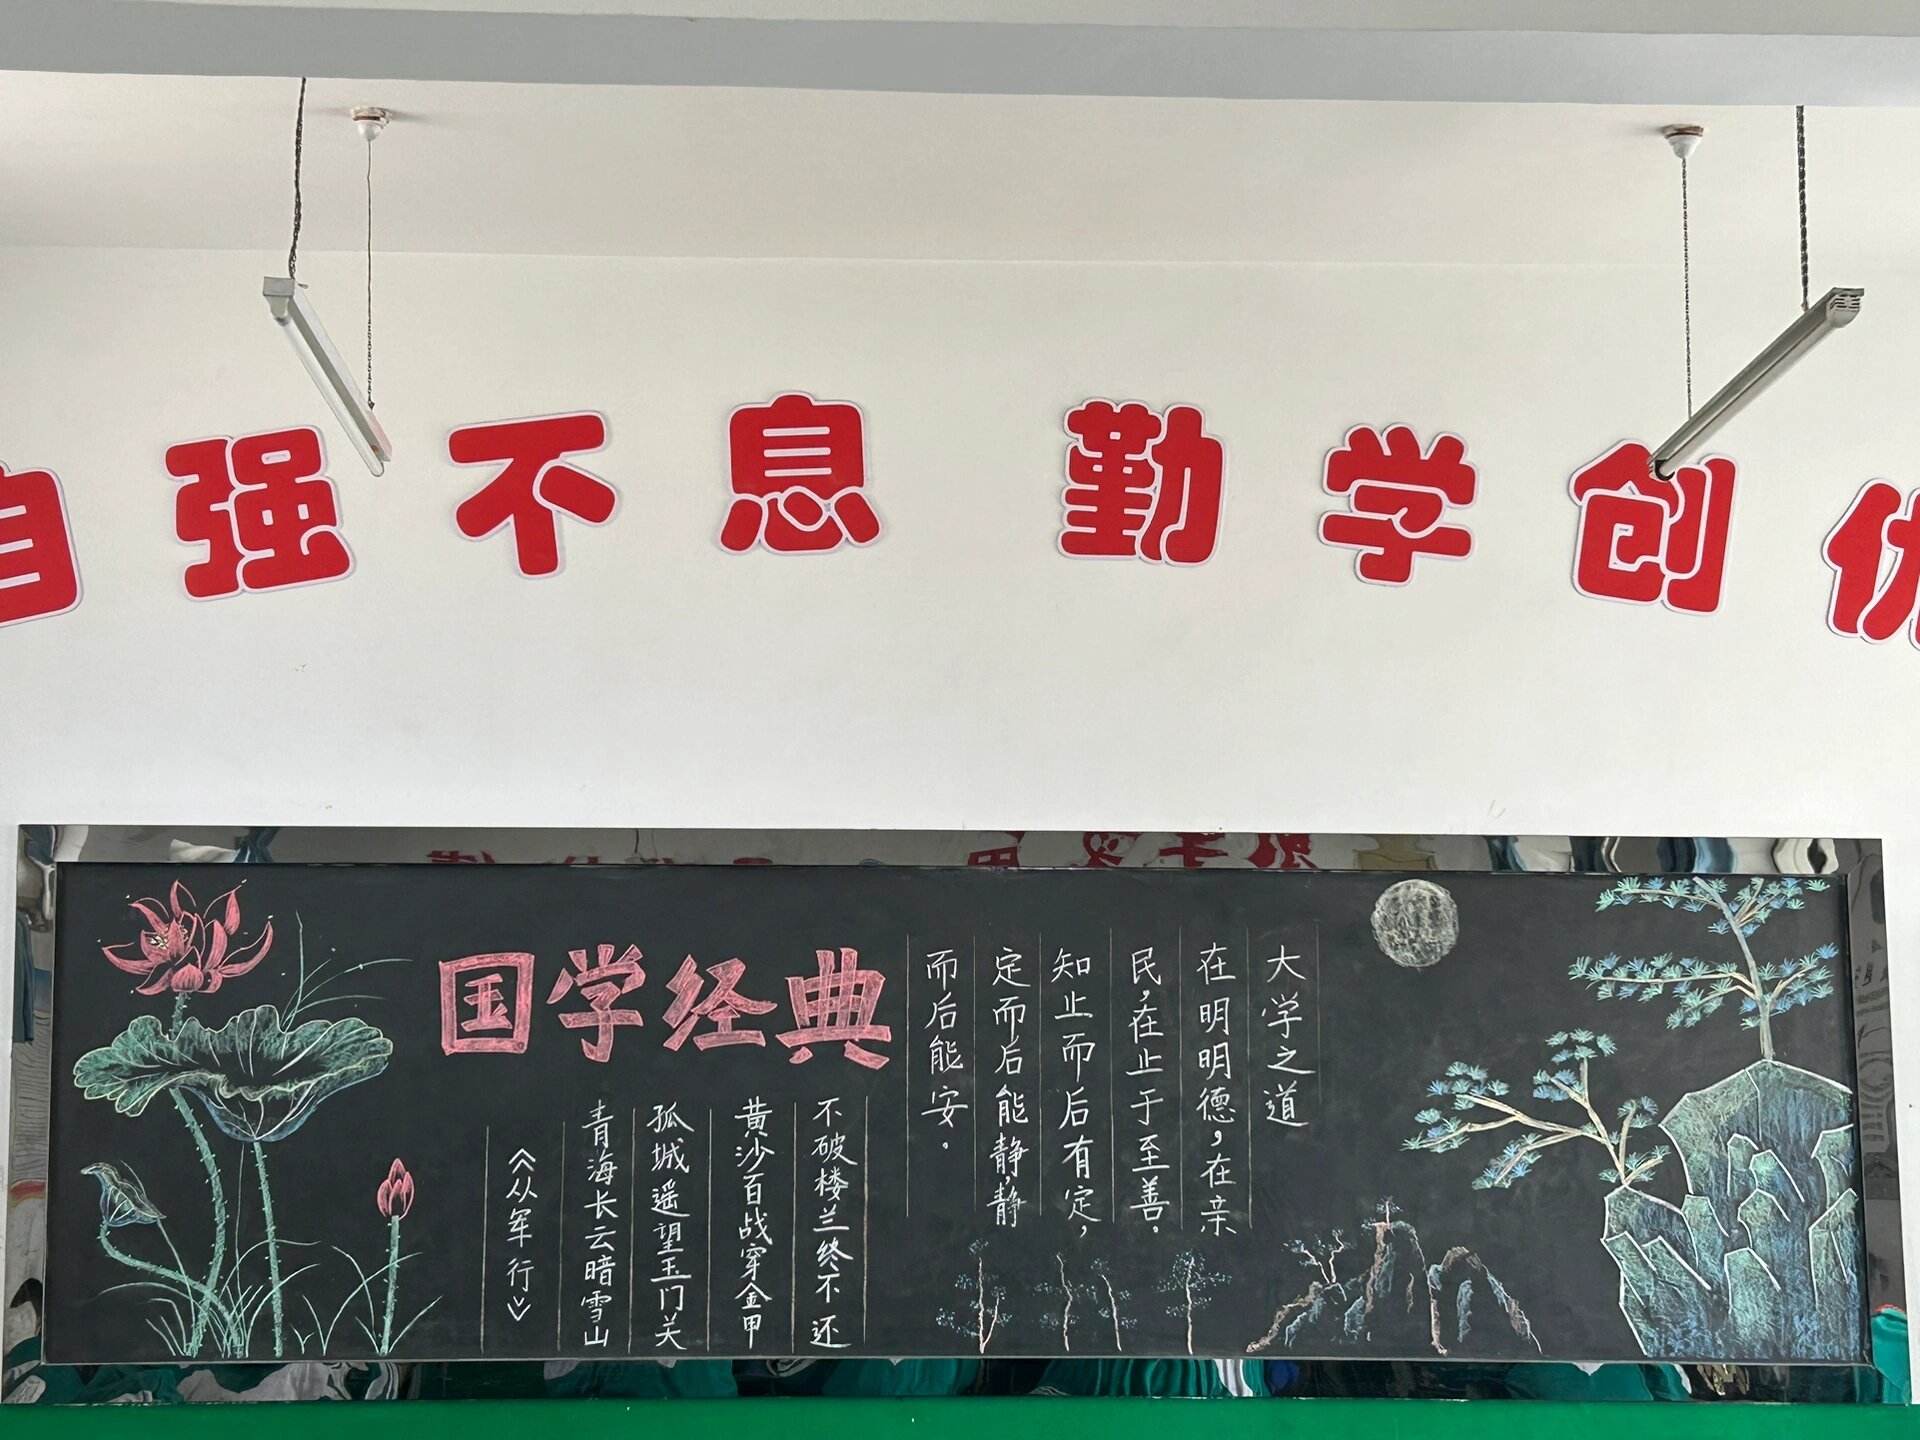 自强不息 勤学创优
国学经典
《从军行》
青海长云暗雪山
孤城遥望玉门关
黄沙百战穿金甲
不破楼兰终不还
大学之道
在明明德，在亲
民，在止于至善．
知止而后有定，
定而后能静，静
而后能安．